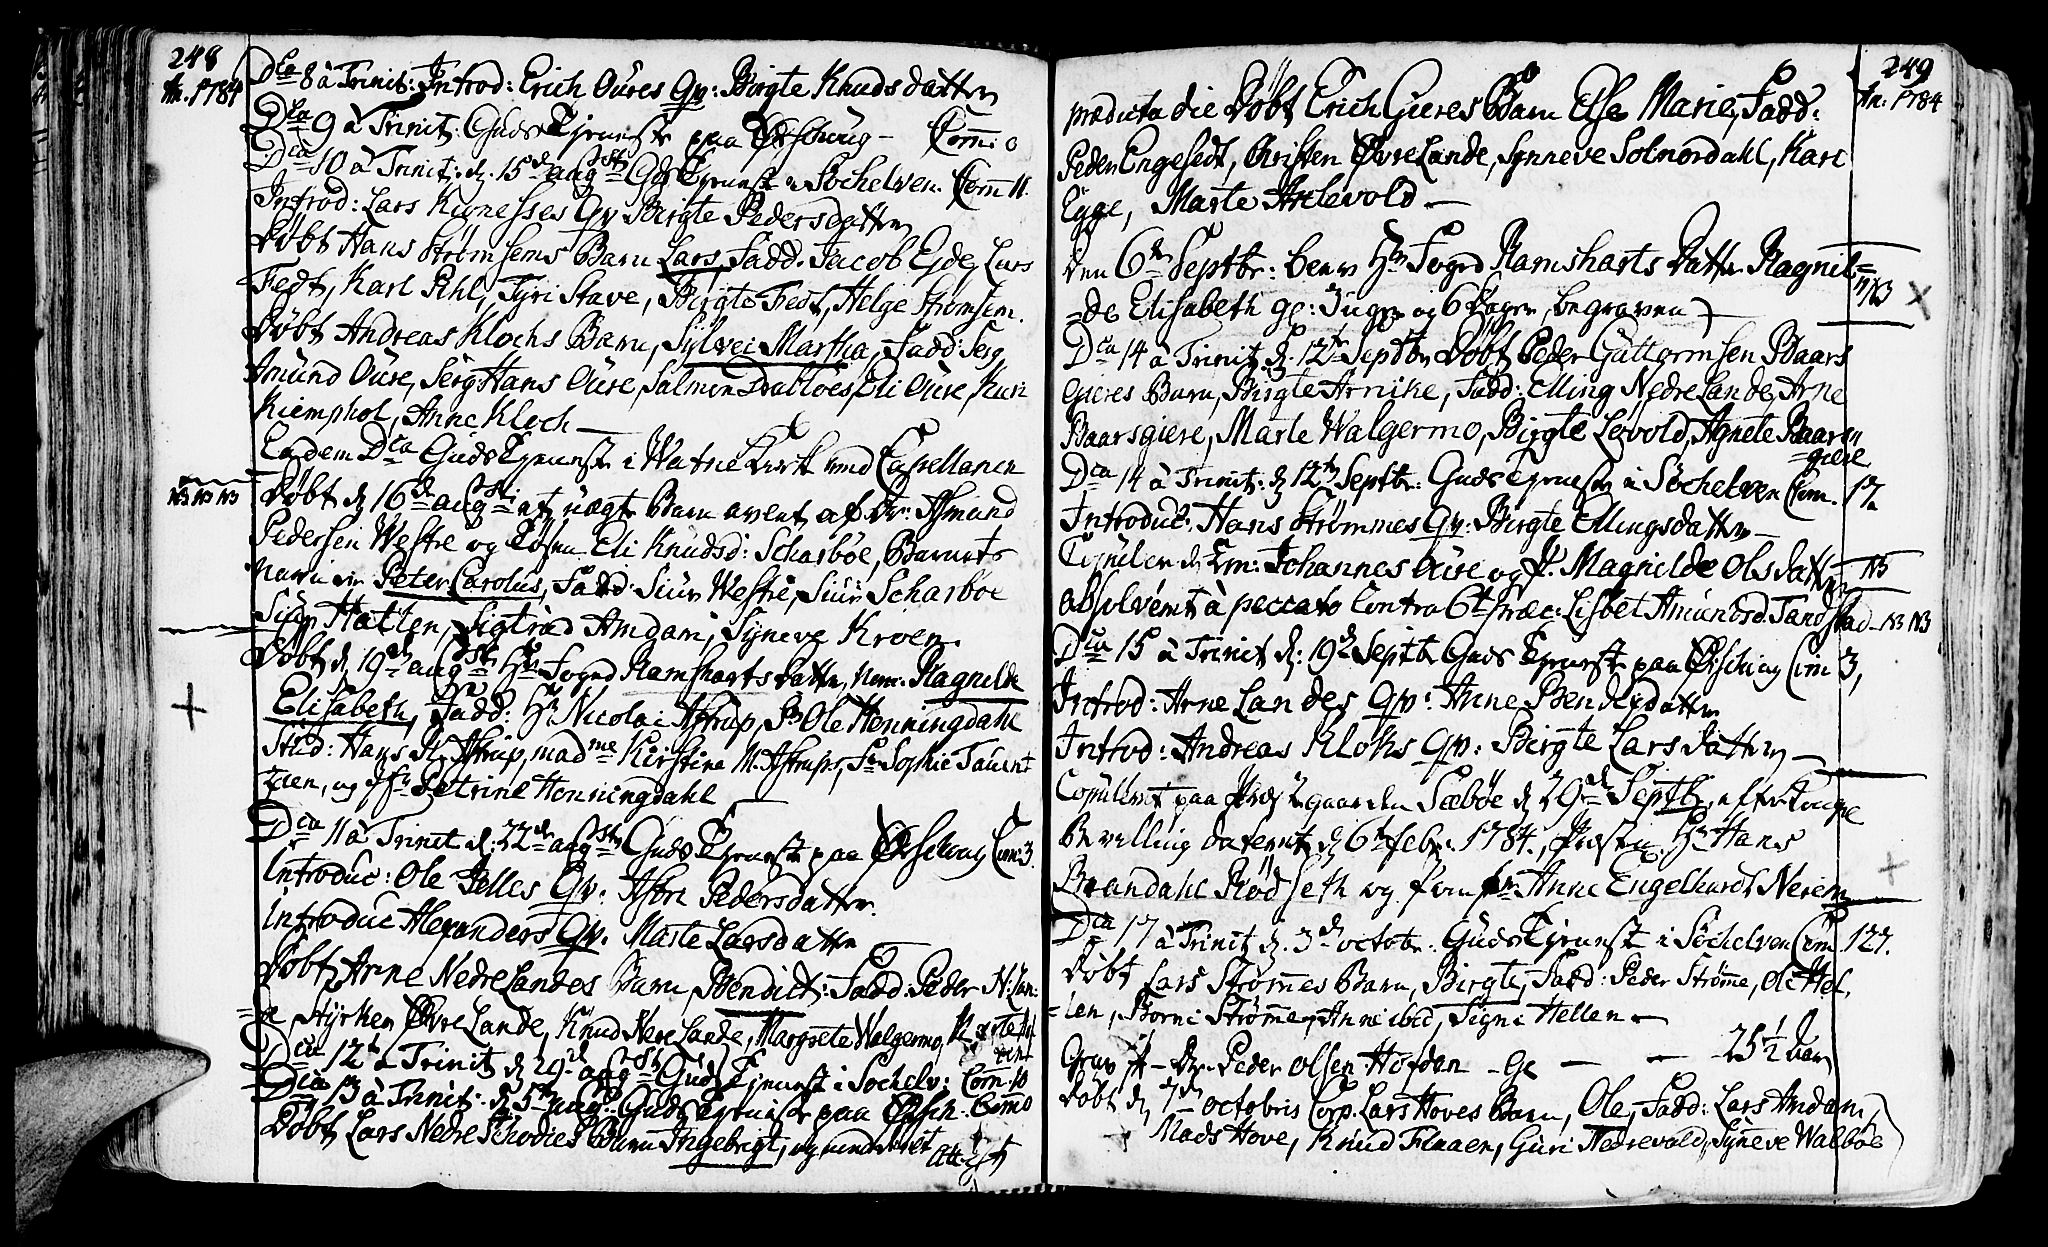 248
An. 1784
Dca 8 à Trinit: Introd: Erich Oures Qv: Birgte Knudsdatter
Dca 9 à Trinit: Guds Tjeneste paa Ørschoug – Com: 0
Dca 10 à Trinit: d. 15de augsti Gds Tjeneste i Søchelven. Com 11.
Introd: Lars Qv Birgte Pedersdatter
Døbt Hans Strømsems Barn Lars, Fadd. Jacob Eyde, Lars
Fedt, Karl Pihl, Tyri Stave, Birgte Fedt, Helge Strømsem.
Døbt Andreas Klochs Barn, Sylvei Martha, Fadd: Serg
Amund Oure, Serg: Hans Oure, Salmon Drabløes, Eli Oure, Kari
Kiemphol, Anne Kloch –
Eadem Dca Guds Tjeneste i Watne Kirk ved Capellanen
NB NB NB Døbt d 16de augsti et uægte Barn avlet af Dr: Asmund
Pedersen Westre og Tøsen Eli Knudsd: Scharbøe, Barnets
navn er Peter Carolus, Fadd: Siur Westre, Siur Scharbøe
Siur Hatlen, Sigtrud Amdam, Syneve Kroen.
Døbt d. 19de augsti Hr Foged Ramsharts Datter, Nom. Ragnilde
Elisabeth, Fadd: Hr Nicolai Astrup, Sr Ole Henningdahl
Stud: Hans Astrup, madme Kirstine M. Astrups, Fr Sophie Tauent
zien, og Jfr Petrine Henningdahl
Dca 11 à Trinit d. 22de augsti Guds Tjeneste paa Ørschoug Com: 3.
Introduc: Ole Qv. Pedersdatter.
Introduc Alexanders Qv. Marte Larsdatter
Døbt Arne Nedre Landes Barn, Bendict: Fadd: Peder N: Lan:
=de, Styrker Øvre Lande, Knud Nere Lande, Margrete Walgermo,
Dca 12te à Trinit d 29de augsti Guds Tjeneste i Søchelv: Com. 10
Dca 13 à Trinit: d 5te Guds Tjeneste paa Ørsch. Com 0
Døbt Lars Nedre Schodies Barn Ingebrigt,
249
An: 1784
prædicta die Døbt Erich Gieres Barn Else Marie, Fadd:
Peder Engesedt, Cristen Øvre Lande, Synneve Solnordahl, Karl
Egge, Marte Arlevold –
Den 6te Septbr: blev Hr Foged Ramsharts Datter Ragnil=
=de Elisabeth gl: 3 uger og 6 Dage, begraven NB
Dca 14 à Trinit d. 12te Septbr Døbt Peder Guttormsen Baars
gieres Barn, Birgte Arnike, Fadd: Elling Nedre Lande, Arne
Baarsgiere, Marte Walgermo, Birgte Løvold, Agnete Baars
=giere
Dca 14 à Trinit: d 12te Septbr: Guds Tjeneste i Søchelven Com. 17.
Introduc: Hans Strømmes Qv: Birgte Ellingsdatter –
Copuleret d. Em: Johannes Oure og P. Magnilde Olsdatter NB
Absolvent à peccato Contra 6t præc: Lisbet Amundsd. Tandstad – NB NB
Dca 15 à Trinit d: 19de Septb Guds Tjeneste paa Ørschoug Com 3,
Introd: Arne Landes Qv: Anne Bendixdatter
Introd: Andreas Kloks Qv: Birgte Larsdatter –
Copuleret paa Præstegaarden Sæbøe d 29de Septb, efter Konge
Bevilling dateret d 6te febr: 1784, Præsten Hr Hans
Brandahl Rødseth og Anne Engelhardt Neriem
Dca 17 à Trinit d. 3de octobr: Guds Tjeneste i Søchelven Com 127.
Døbt Lars Strømes Barn, Birgte, Fadd: Peder Strømme, Ole Hel,
=len, Borni Strømme, Anne ibid, Signi Hellen –
Grav f – Dr. Peder Olsen Hofden – Gl – – 25 1/2 Aar
Døbt d 7de octobris Corp. Lars Hoves Barn, Ole, Fadd: Lars Andam,
Mads Hove, Knud Flaaen, Guri Nedrevold, Synneve Walbøe